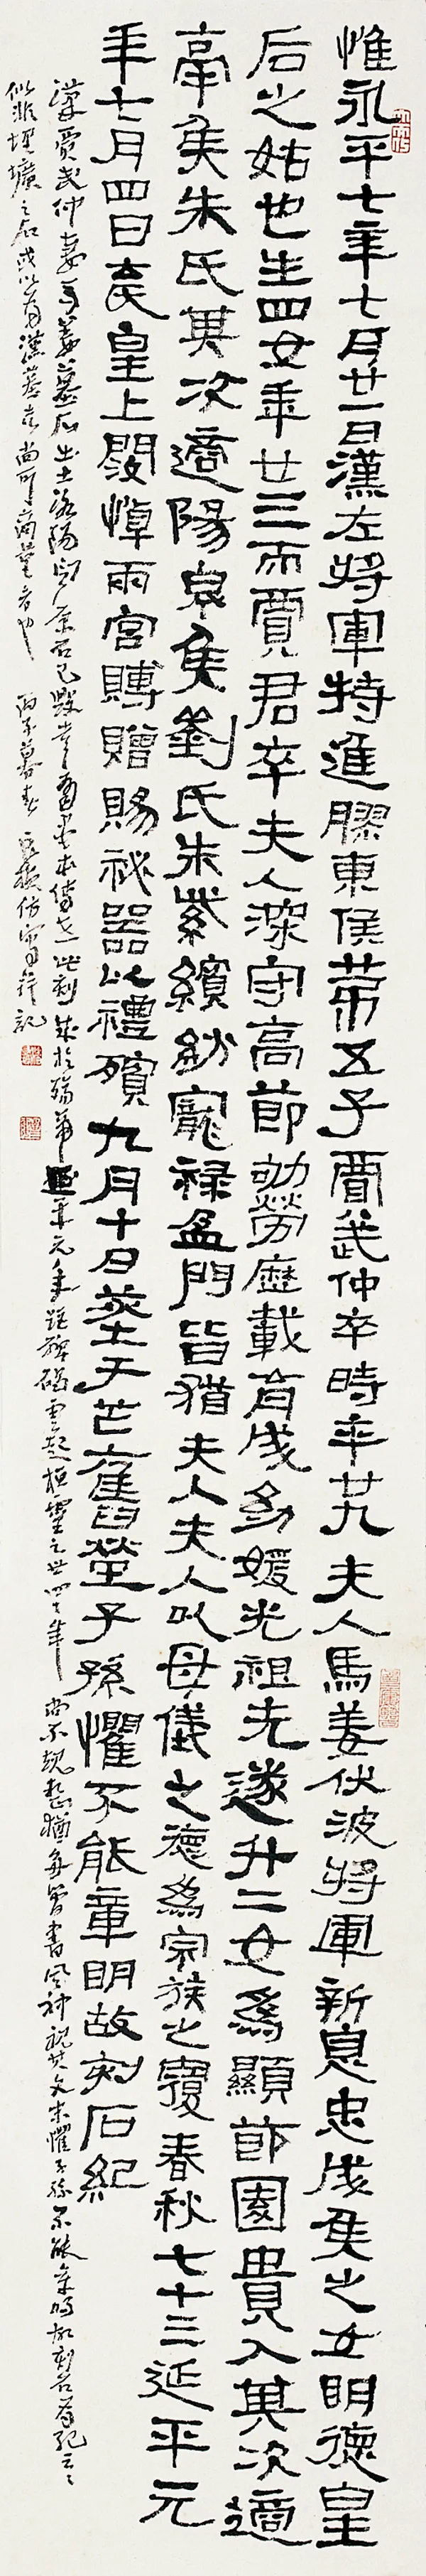 惟永平七年七月廿一日漢左將軍特進膠東侯苐五子賈武仲卒時年廿九夫人馬姜伏波將軍新息忠成矦之女明德皇
后之姑也生四女年廿三而賈君卒夫人深守高節劬勞歷載育成幼媛光祖先遂升二女為顯節園貴人其次適
鬲矦朱氏其次適陽泉矦劉氏朱紫繽紛寵祿盈門皆猶夫人夫人以母儀之德為宗族之覆春秋七十三延平元
年七月四日薨皇上閔悼兩宮賻贈賜祕器以禮殯九月十日葬于芒舊塋子孫懼不能章明故刻石紀
漢賈武仲妻馬姜墓石出土洛陽原石已毀此刻成於殤帝延平元年距碑碣雲起桓靈之世四十年尚不規整猶每會書風神視其文末懼子孫不能章明故刻石為紀云云
似非埋壙之石或以為漢墓志尚可商量者也 丙子暮春 仿寫並記